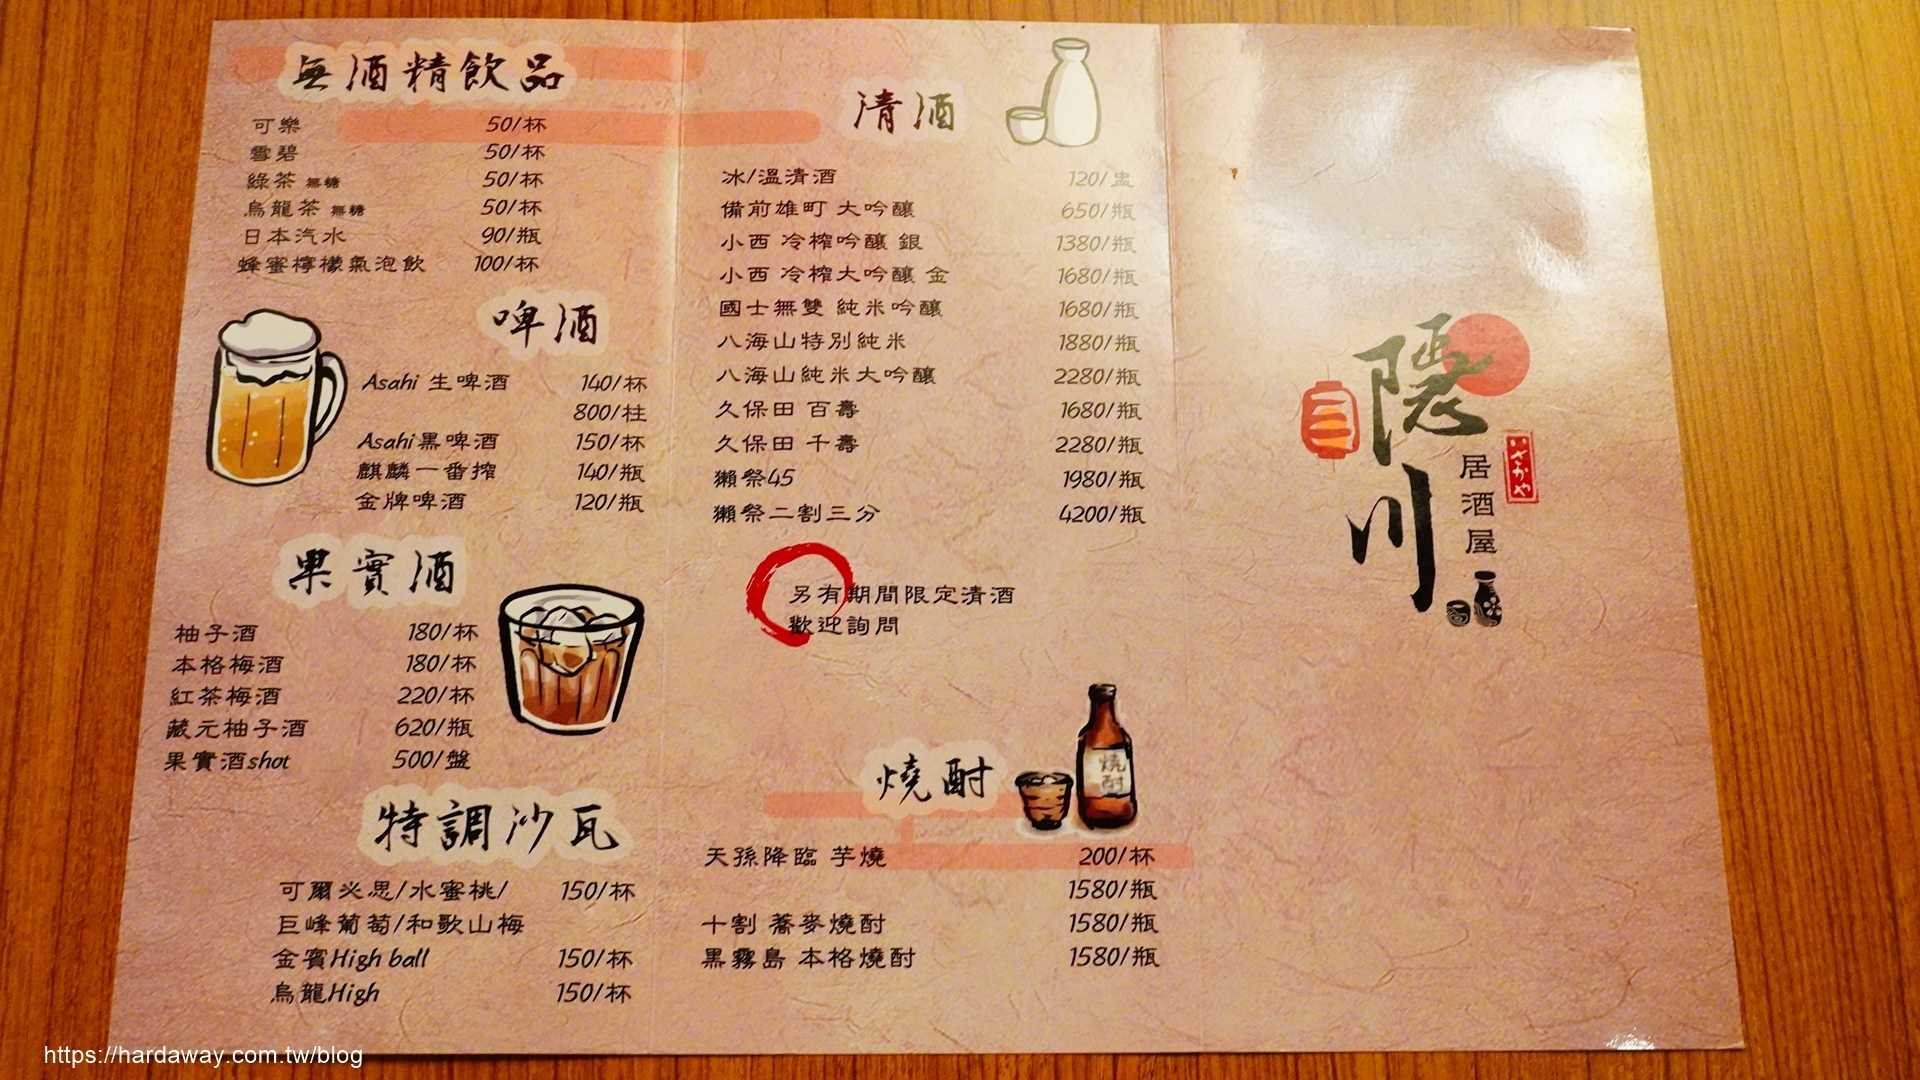 無酒精飲品
可樂 50/杯
雪碧 50/杯
綠茶 無糖 50/杯
烏龍茶 無糖 50/杯
日本汽水 90/瓶
蜂蜜檸檬氣泡飲 100/杯
啤酒
Asahi 生啤酒 140/杯
800/柱
Asahi黑啤酒 150/杯
麒麟一番搾 140/瓶
金牌啤酒 120/瓶
果實酒
柚子酒 180/杯
本格梅酒 180/杯
紅茶梅酒 220/杯
藏元柚子酒 620/瓶
果實酒shot 500/盤
特調沙瓦
可爾必思/水蜜桃/ 150/杯
巨峰葡萄/和歌山梅
金賓High ball 150/杯
烏龍High 150/杯
清酒
冰/溫清酒 120/盅
備前雄町 大吟釀 650/瓶
小西 冷榨吟釀 銀 1380/瓶
小西 冷榨大吟釀 金 1680/瓶
國士無雙 純米吟釀 1680/瓶
八海山特別純米 1880/瓶
八海山純米大吟釀 2280/瓶
久保田 百壽 1680/瓶
久保田 千壽 2280/瓶
獺祭45 1980/瓶
獺祭二割三分 4200/瓶
另有期間限定清酒
歡迎詢問
燒酎
燒酎
天孫降臨 芋燒 200/杯
1580/瓶
十割 蕎麥燒酎 1580/瓶
黑霧島 本格燒酎 1580/瓶
隱川
居酒屋
いざかや
https://hardaway.com.tw/blog